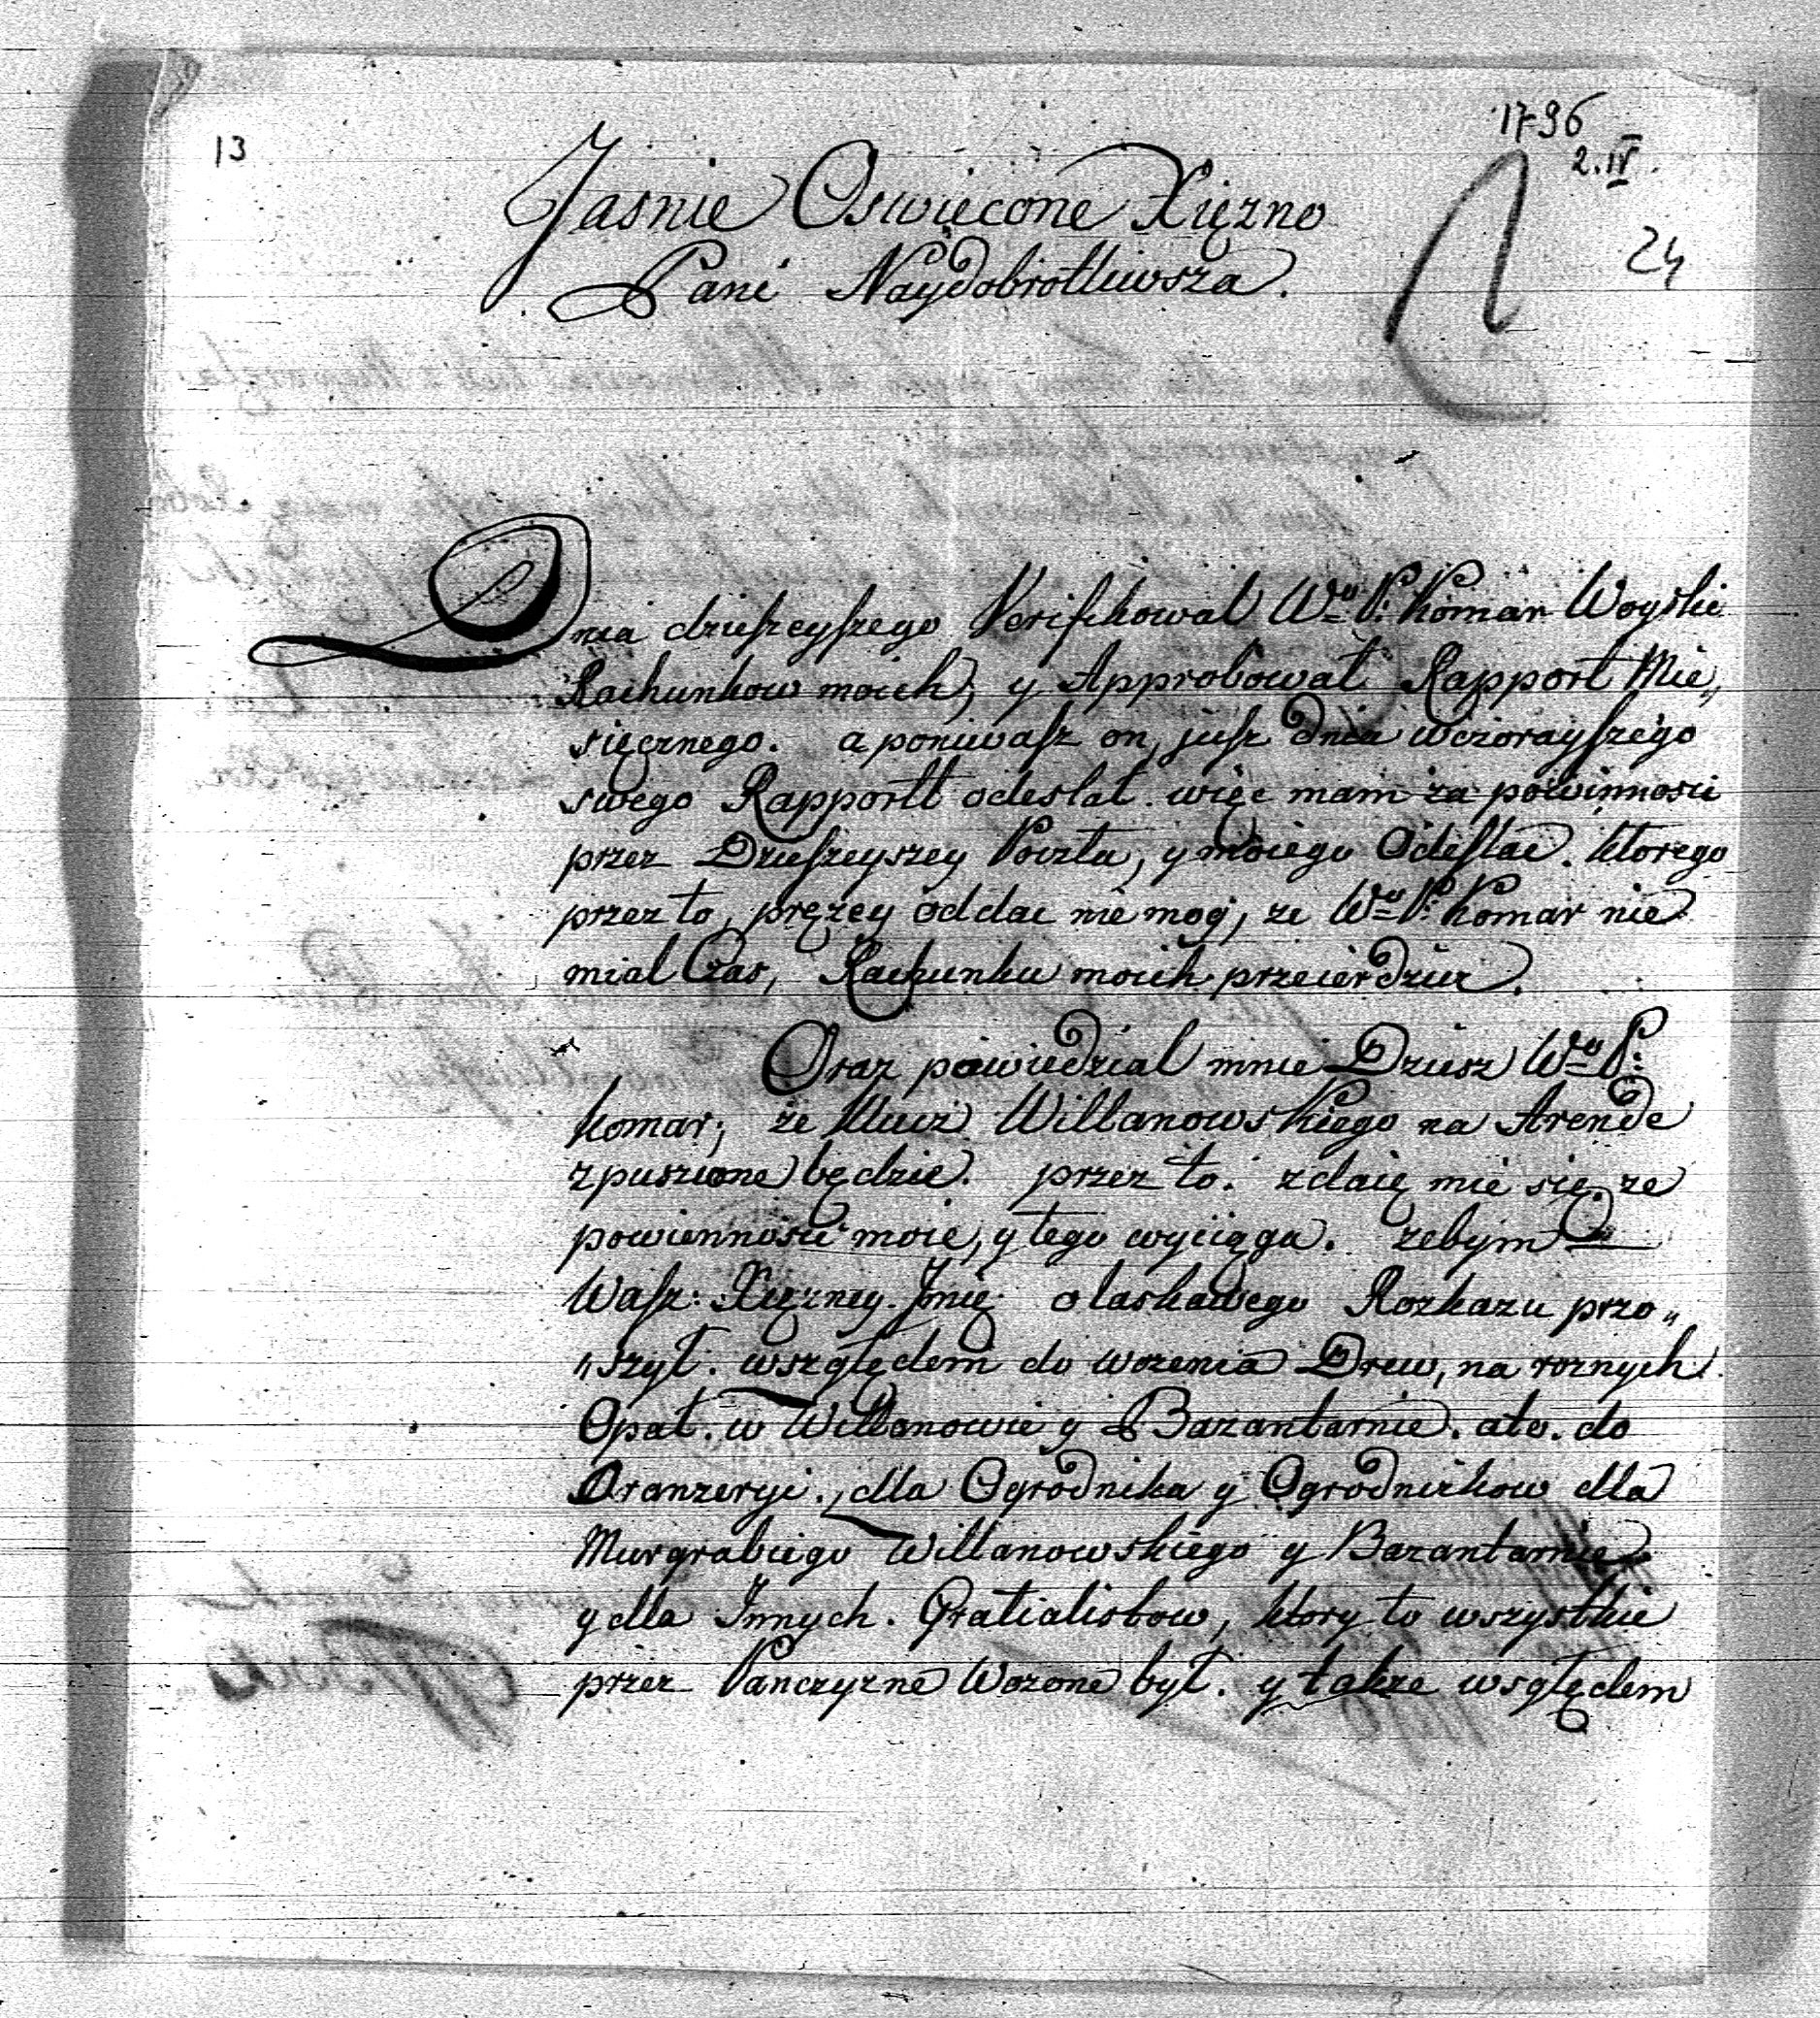 13
1796
2.IV.
24
Jasnie Oswięcone Xięzno
Pani Naydobrotliwsza.
Dnia dzieſzeyſzego Verifikowal Wo P: Komar Woyski
Rachunkow moich, y Approbował Rapport Mie„
sięcznego. a poniewaſz on, juſz dnia wczorayſzego
swego Rapportt odeslał. więc mam za powinnosci
przez Dzieſzeyszey Poczta, y moiego Odeſlac. ktorego
przez to, pręzey oddac nie mog, ze Wo P: Komar nie
mial Czas, Rachunku moich przeierdziez.
Oraz powiedzial mnie Dziesz Wo P:
Komar; że Klucz Willanowskiego na Arende
zpuszione będzie. przez to. zdaię mie się. ze
powiennosci moie, y tego wyciąga. zebym
Waſz: Xięzney Jmię o laskawego Rozkazu pro„
„szył. wszględem do wozenia Drew, na roznych
Opał. w Willanowie y Bazantarnie. ato. do
Oranzeryi., dla Ogrodnika y Ogrodnizkow dla
Murgrabiego Willanowskiego y Bazantarnie
y dla Innych. Gratialistow, ktory to wszystkie
przez Panczyzne Wozone był. y takze wsględem